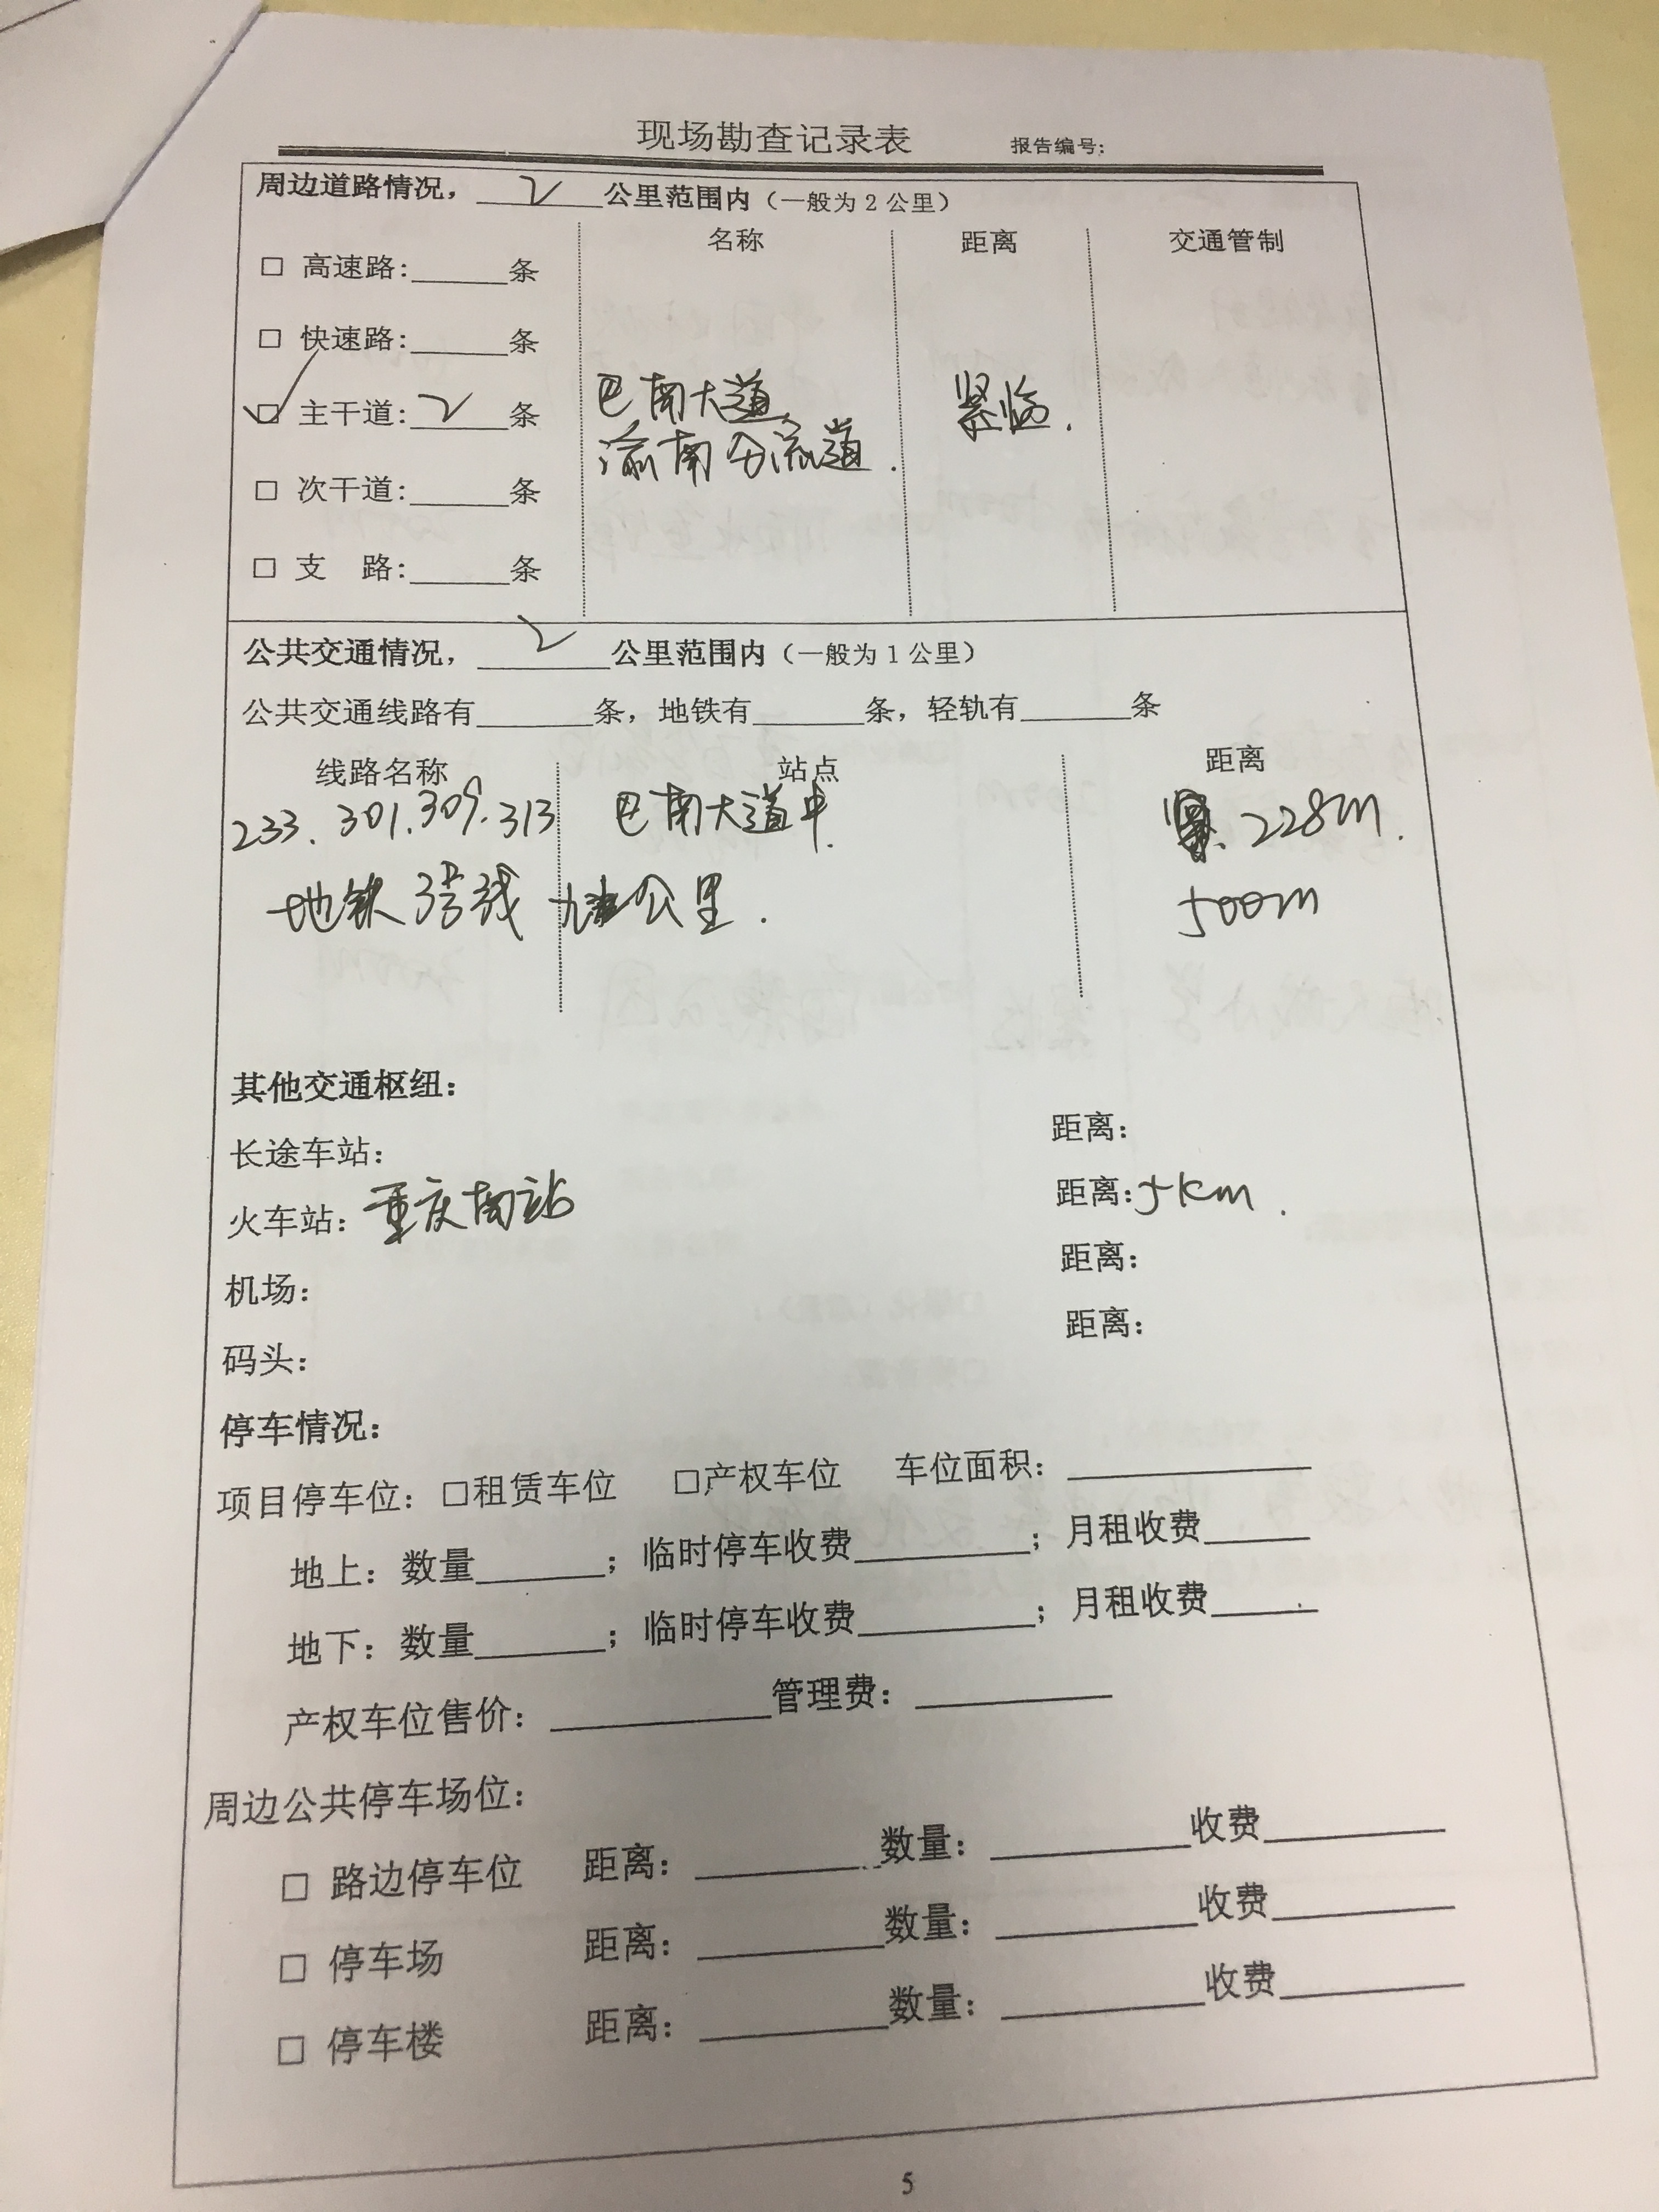 现场勘查记录表 报告编号:
周边道路情况，2公里范围内（一般为2公里）
名称 距离 交通管制
□ 高速路:______条
□ 快速路:______条
☑ 主干道:2条 巴南大道 紧临.
渝南分流道.
□ 次干道:______条
□ 支 路:______条
公共交通情况，2公里范围内（一般为1公里）
公共交通线路有______条，地铁有______条，轻轨有______条
线路名称 站点 距离
233.301.309.313 巴南大道中. 228m.
地铁3号线 九公里. 500m
其他交通枢纽:
长途车站: 距离:
火车站: 重庆南站 距离:5km.
机场: 距离:
码头: 距离:
停车情况:
项目停车位: □租赁车位 □产权车位 车位面积:______
地上: 数量______; 临时停车收费______; 月租收费______
地下: 数量______; 临时停车收费______; 月租收费______
产权车位售价:______管理费:______
周边公共停车场位:
□ 路边停车位 距离:______数量:______收费______
□ 停车场 距离:______数量:______收费______
□ 停车楼 距离:______数量:______收费______
5